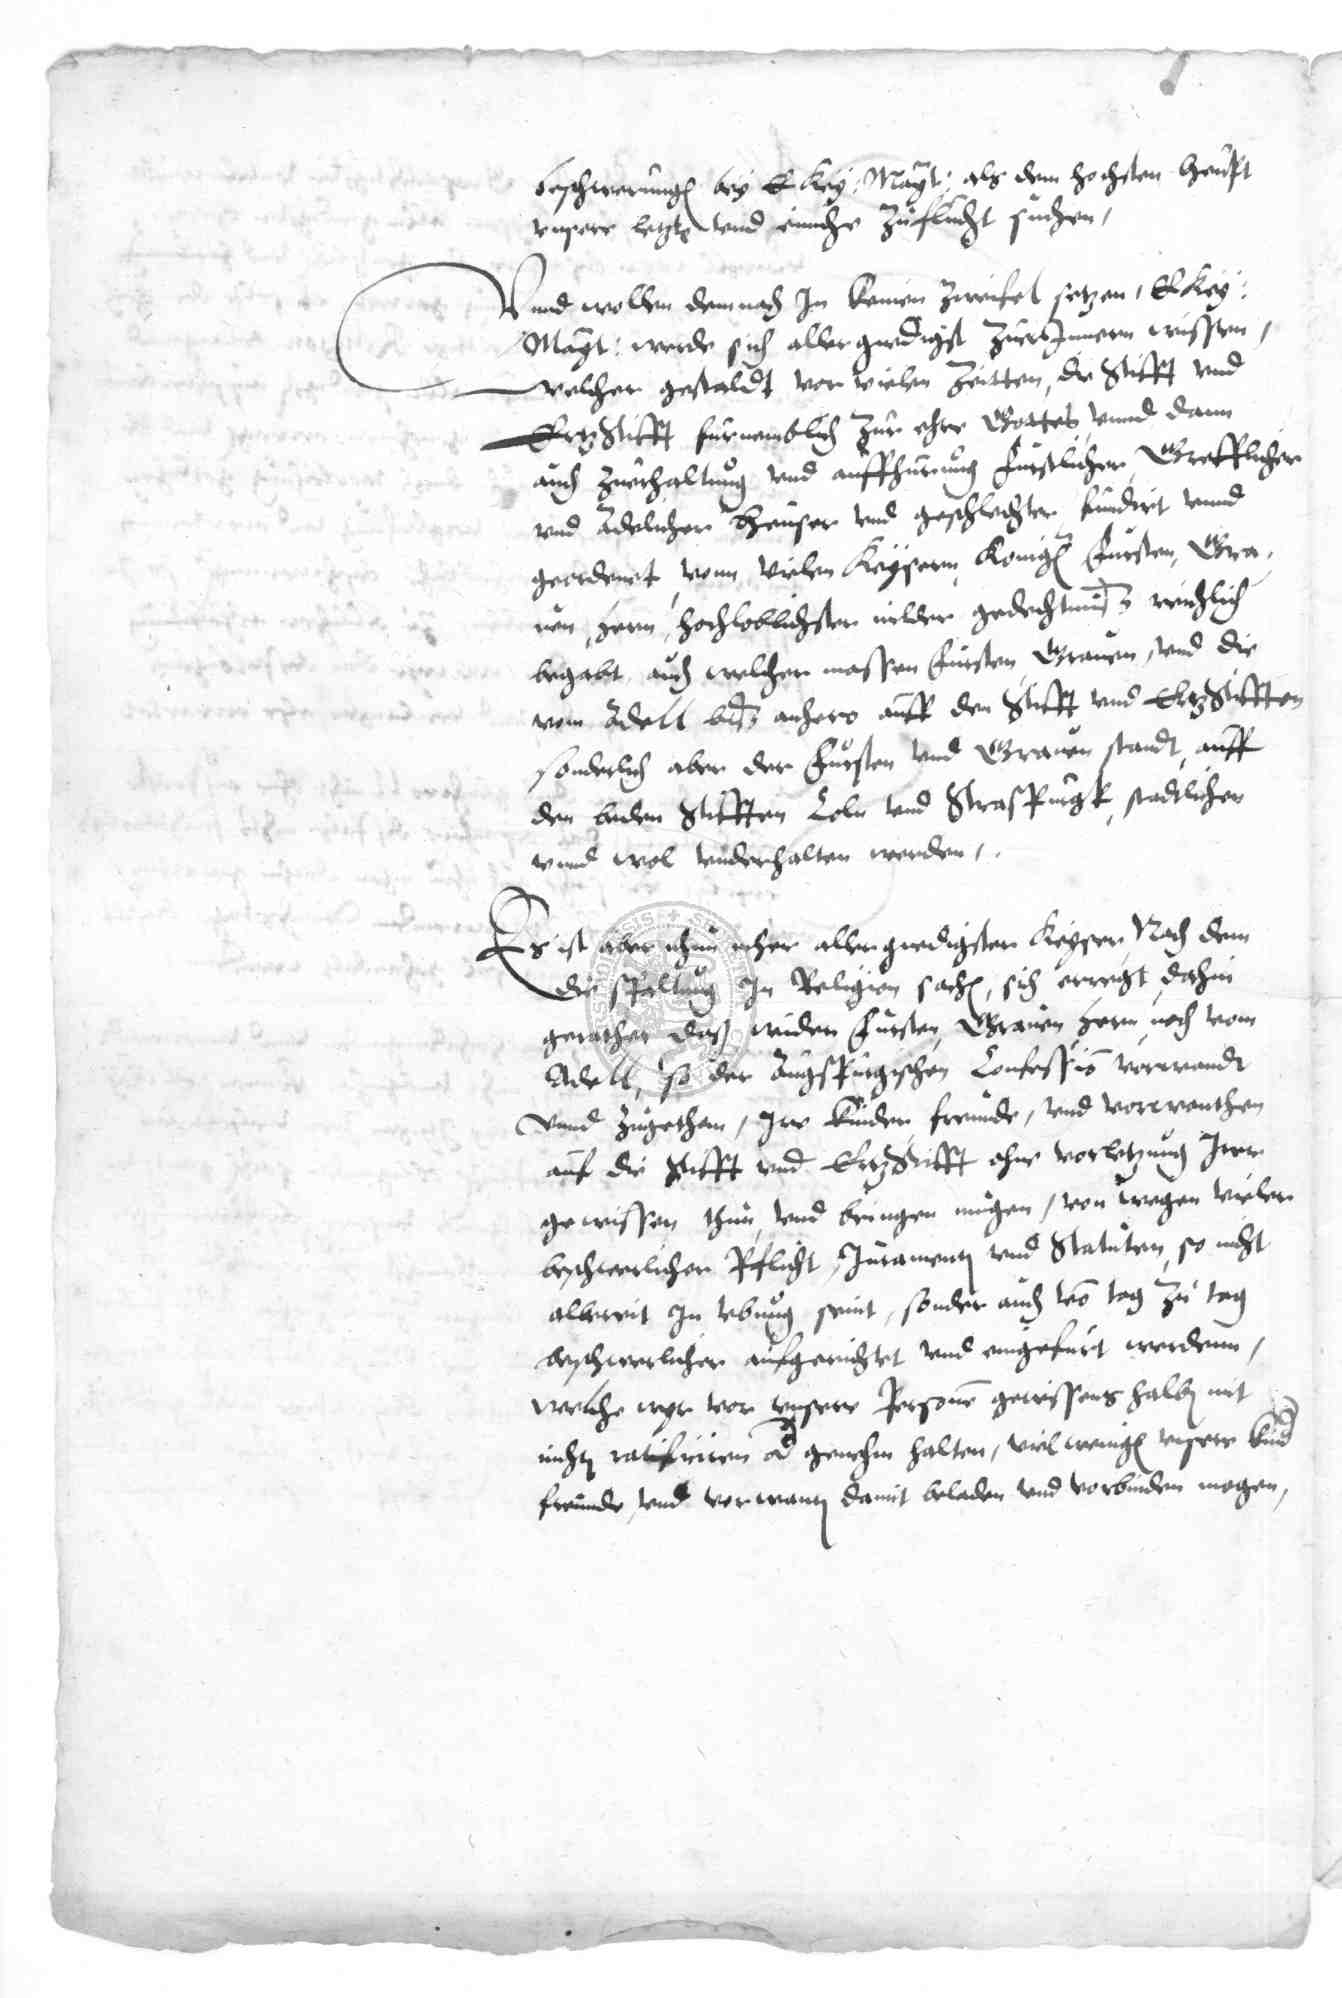 beschwerung bey E Key: Mayt: als dem hochsten heupt
vnsere letzte vnd einiche Zuflucht suchen,
Vnnd wollen demnach In keinen Zweifel setzen, E Key:
Mayt: werde sich aller gnedigist ZuerInnern wissen,
welcher gestaldt vor vielen Zeitten, die Stifft vnd
ErtzStifft furnemblich Zur ehre Gottes, vnnd dann
auch Zuerhaltung vnd auffhurung Furstlicher, Grefflicher
vnd Adelicher heuser vnd geschlechter, fundirt vnnd
geordenet, vonn vielen Keysern, Konig, Fursten, Gra,
uen, hern, hochloblichster milder gedechtnus reichlich
begabt, auch welcher massen Fursten, Grauen, vnd die
vom Adell bis anhero auff den Stifft vnd ErtzStifften
sonderlich aber der Fursten vnd Grauen standt, auff
den beiden Stifften Coln vnd Straspurgk, stadtlicher
vnnd wol vnderhalten werden,.
Es ist aber nhun mher aller gnedigster Keyser, Nach dem
die spaltung In Religion sach, sich erregt, dahin
gerathen das weder Fursten, Grauen, hern, noch vom
Adell, so der Augspurgischen Confession vorwandt
vnnd Zugethan, Ire kinder, freunde, vnd vorwanthen
auf die Stifft vnd ErtzStifft ohne vorletzung Irer
gewissen thun, vnd bringen mugen, von wegen vieler
beschwerlicher Pflicht, Jurament vnd Statuten, so nicht
allereit In vbung seint, sonder auch von tag Zu tag
beschwerlicher aufgerichtet vnd eingefurt werdenn,
welche wyr vor vnsere Personen gewissens halb mit
nicht ratificiren od genehm halten, viel wenig vnsere kind
freunde, vnd vorwant damit beladen vnd vorbinden mogen,